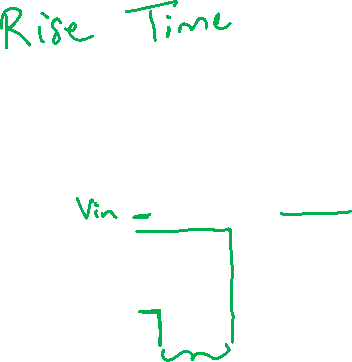 Rise Time
Vin